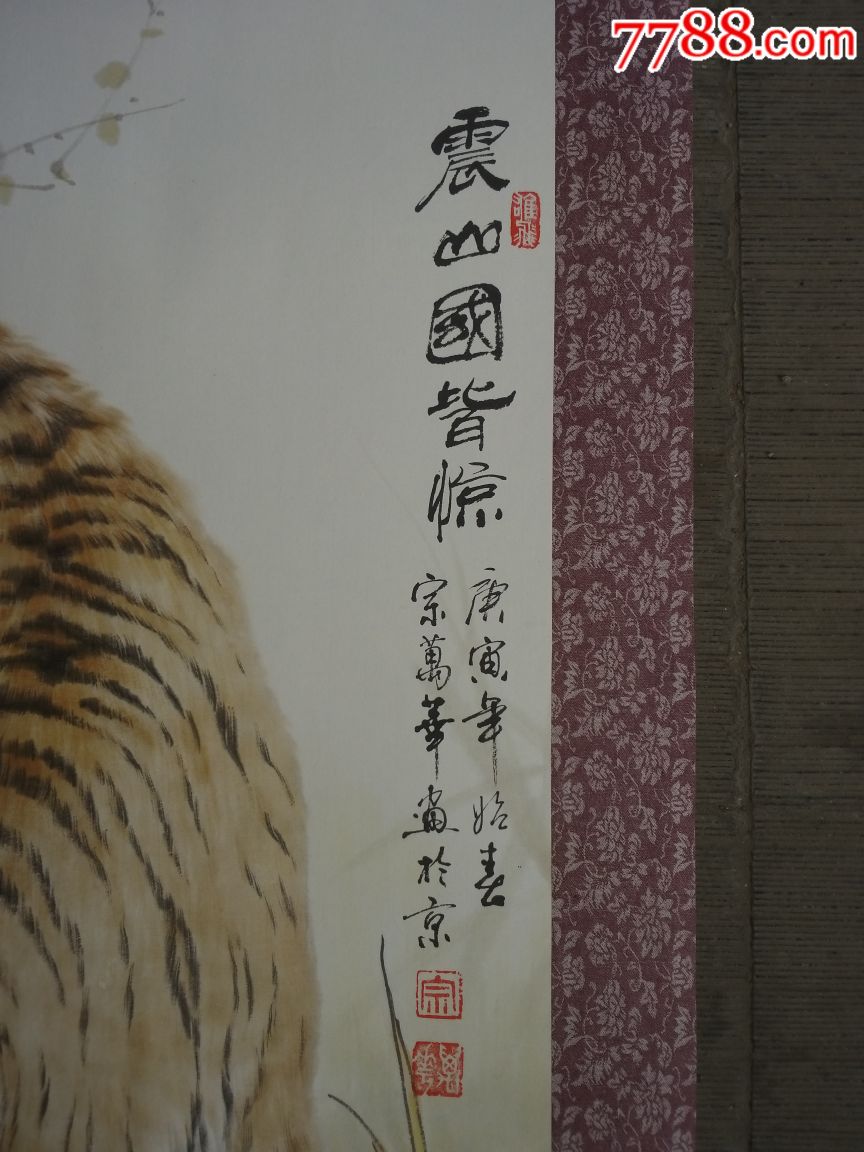 7788.com
震山國皆惊
庚寅年始春
宗萬華畫於京
宗
萬華